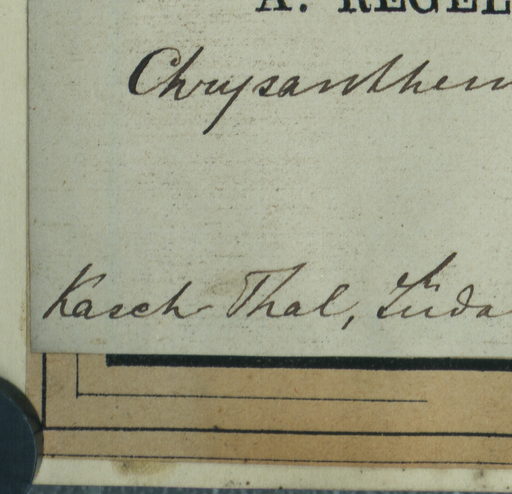 A. REGEL
Chrysanthem
Kasch Thal,